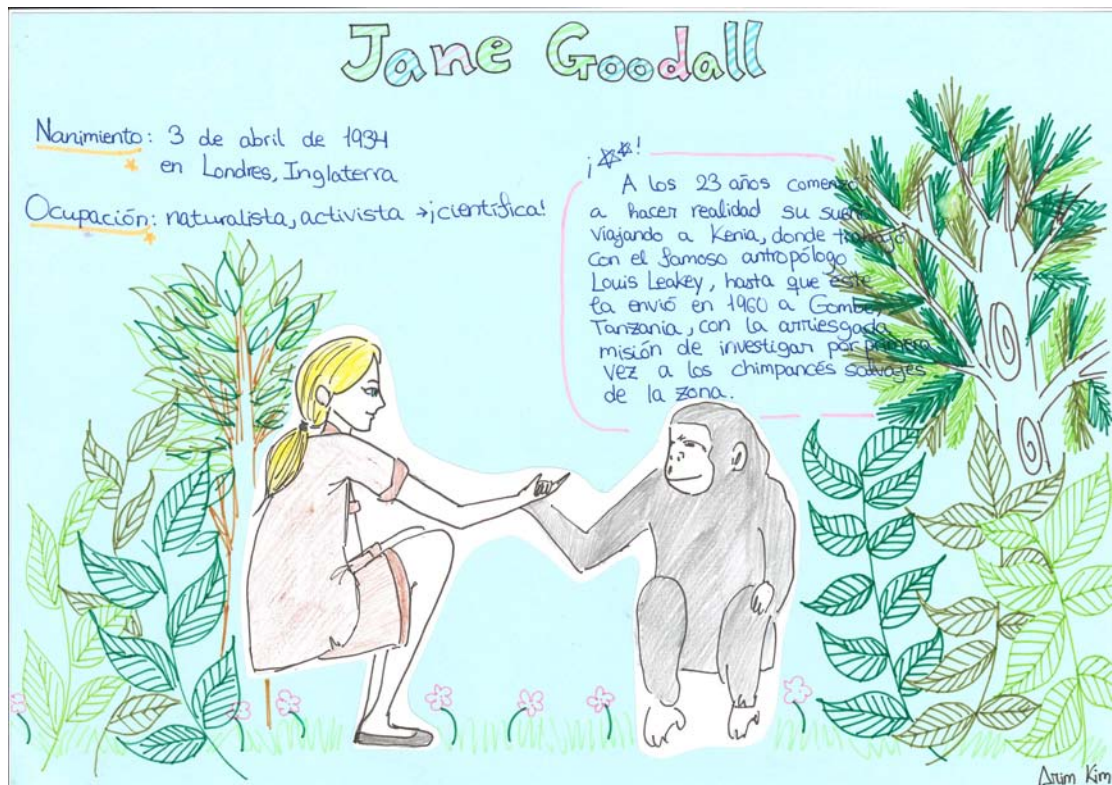 Jane Goodall
Nanimiento: 3 de abril de 1934
en Londres, Inglaterra
Ocupación: naturalista, activista →¡científica!
A los 23 años comenzó
a hacer realidad su sueño
viajando a Kenia, donde trabajó
con el famoso antropólogo
Louis Leakey, hasta que este
la envió en 1960 a Gombe,
Tanzania, con la arriesgada
misión de investigar por primera
vez a los chimpancés salvajes
de la zona.
Arim Kim